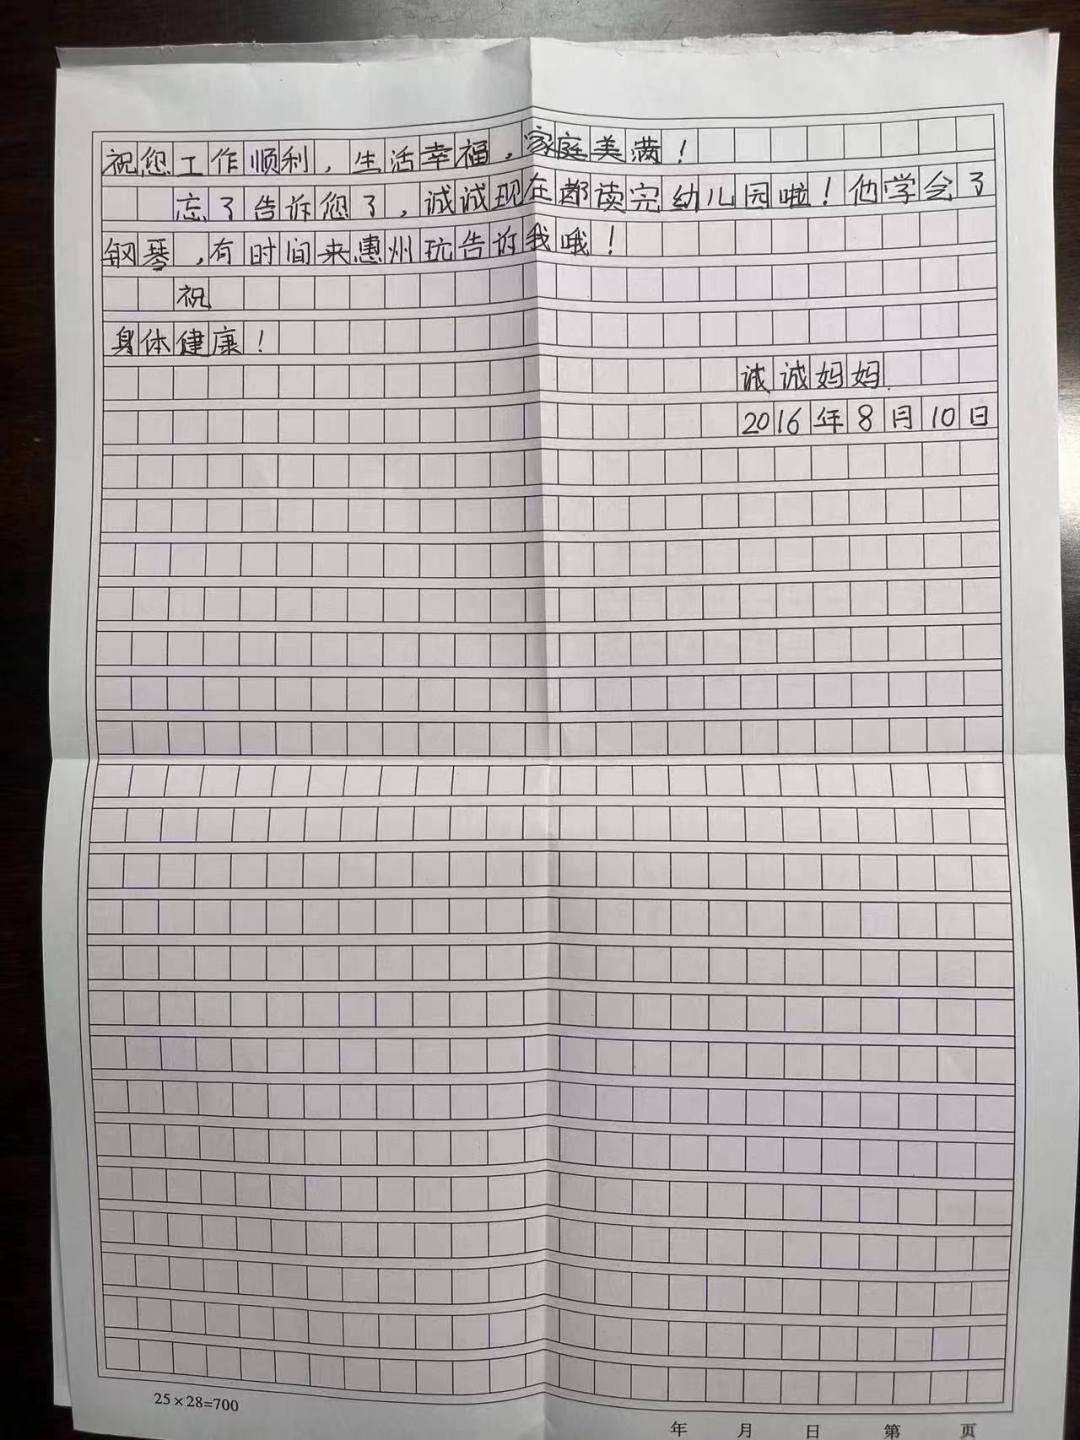 祝您工作顺利，生活幸福，家庭美满！
忘了告诉您了，诚诚现在都读完幼儿园啦！他学会了
钢琴，有时间来惠州玩告诉我哦！
祝
身体健康！
诚诚妈妈
2016年8月10日
25×28=700
年 月 日 第 页